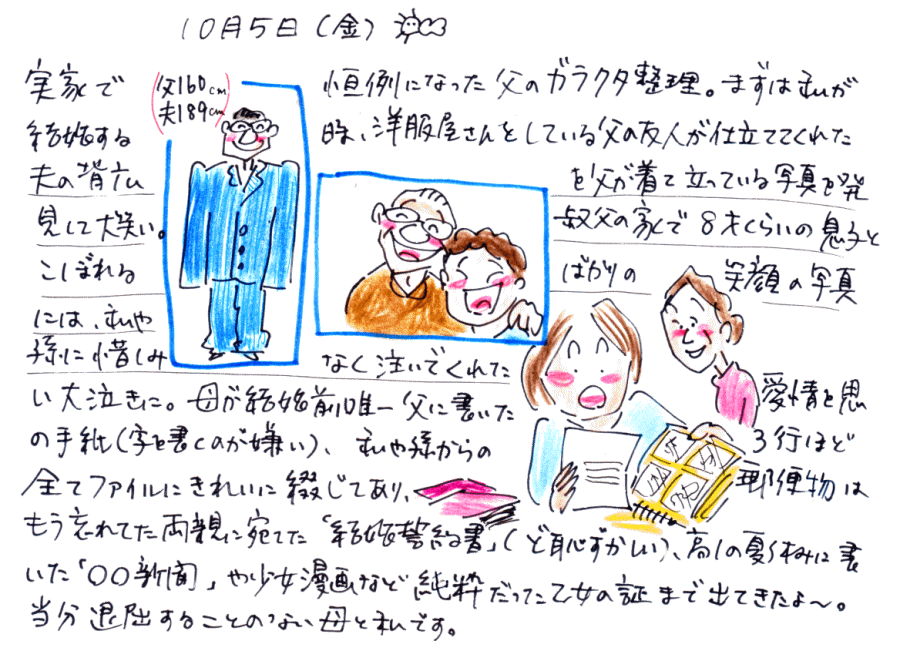 10月5日(金)
父160cm
夫189cm
実家で 恒例になった父のガラクタ整理。まずは私が
結婚する 時、洋服屋さんをしている父の友人が仕立ててくれた
夫の背広 を父が着て立っている写真を発
見して大笑い。 叔父の家で8才くらいの息子と
こぼれる ばかりの 笑顔の写真
には、私や
孫に惜しみ なく注いでくれた 愛情を思
い大泣きに。母が結婚前唯一父に書いた 3行ほど
の手紙(字を書くのが嫌い)、私や孫からの 郵便物は
全てファイルにきれいに綴じてあり、
もう忘れてた両親に宛てた「結婚誓約書」(ど恥ずかしい)、高1の夏休みに書
いた「〇〇新聞」や少女漫画など純粋だった乙女の証まで出てきたよ〜。
当分退屈することのない母と私です。